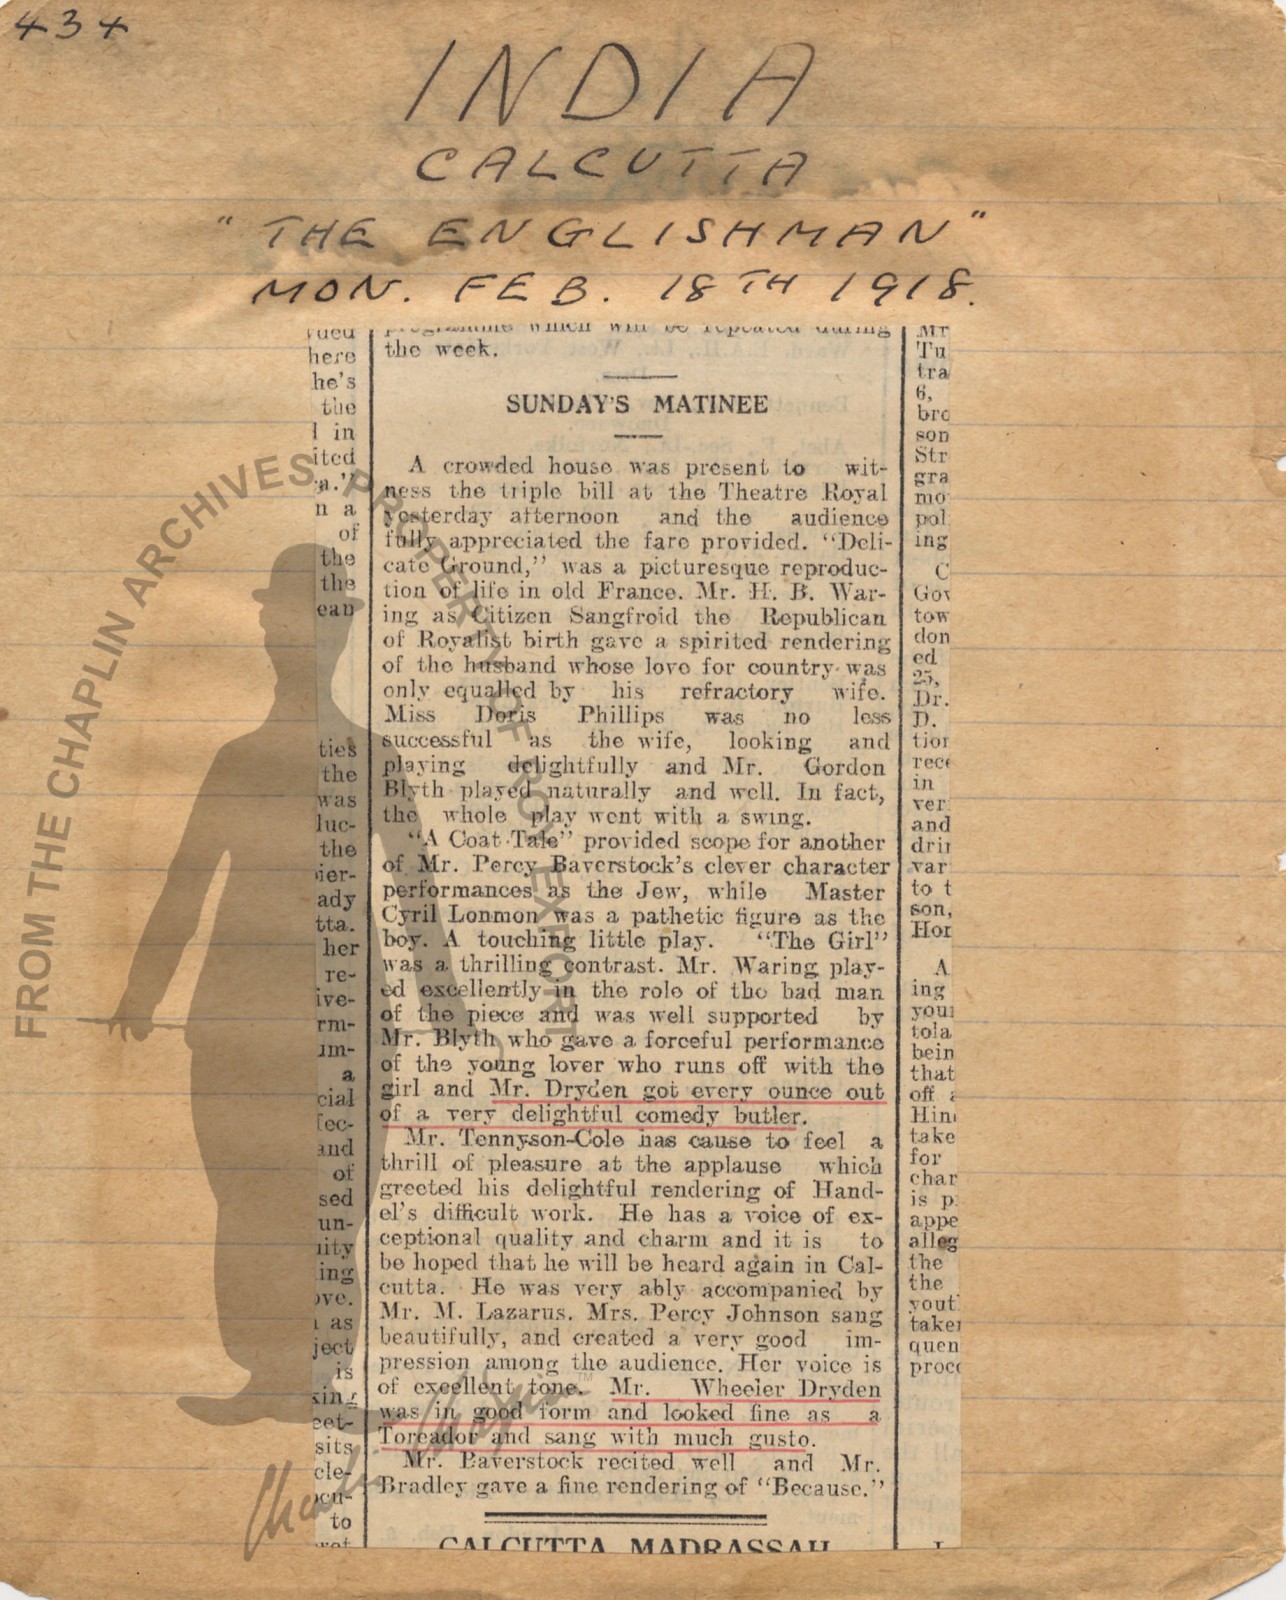 434
INDIA
CALCUTTA
"THE ENGLISHMAN"
MON. FEB. 18TH 1918.
programme which will be repeated during
the week.
SUNDAY'S MATINEE
A crowded house was present to wit-
ness the triple bill at the Theatre Royal
yesterday afternoon and the audience
fully appreciated the fare provided. "Deli-
cate Ground," was a picturesque reproduc-
tion of life in old France. Mr. H. B. War-
ing as Citizen Sangfroid the Republican
of Royalist birth gave a spirited rendering
of the husband whose love for country was
only equalled by his refractory wife.
Miss Doris Phillips was no less
successful as the wife, looking and
playing delightfully and Mr. Gordon
Blyth played naturally and well. In fact,
the whole play went with a swing.
"A Coat Tale" provided scope for another
of Mr. Percy Baverstock's clever character
performances as the Jew, while Master
Cyril Lonmon was a pathetic figure as the
boy. A touching little play. "The Girl"
was a thrilling contrast. Mr. Waring play-
ed excellently in the role of the bad man
of the piece and was well supported by
Mr. Blyth who gave a forceful performance
of the young lover who runs off with the
girl and Mr. Dryden got every ounce out
of a very delightful comedy butler.
Mr. Tennyson-Cole has cause to feel a
thrill of pleasure at the applause which
greeted his delightful rendering of Hand-
el's difficult work. He has a voice of ex-
ceptional quality and charm and it is to
be hoped that he will be heard again in Cal-
cutta. He was very ably accompanied by
Mr. M. Lazarus. Mrs. Percy Johnson sang
beautifully, and created a very good im-
pression among the audience. Her voice is
of excellent tone. Mr. Wheeler Dryden
was in good form and looked fine as a
Toreador and sang with much gusto.
Mr. Baverstock recited well and Mr.
Bradley gave a fine rendering of "Because."
CALCUTTA MADRASSAH
FROM THE CHAPLIN ARCHIVES PROPERTY OF ROY EXPORT
Charlie Chaplin ™